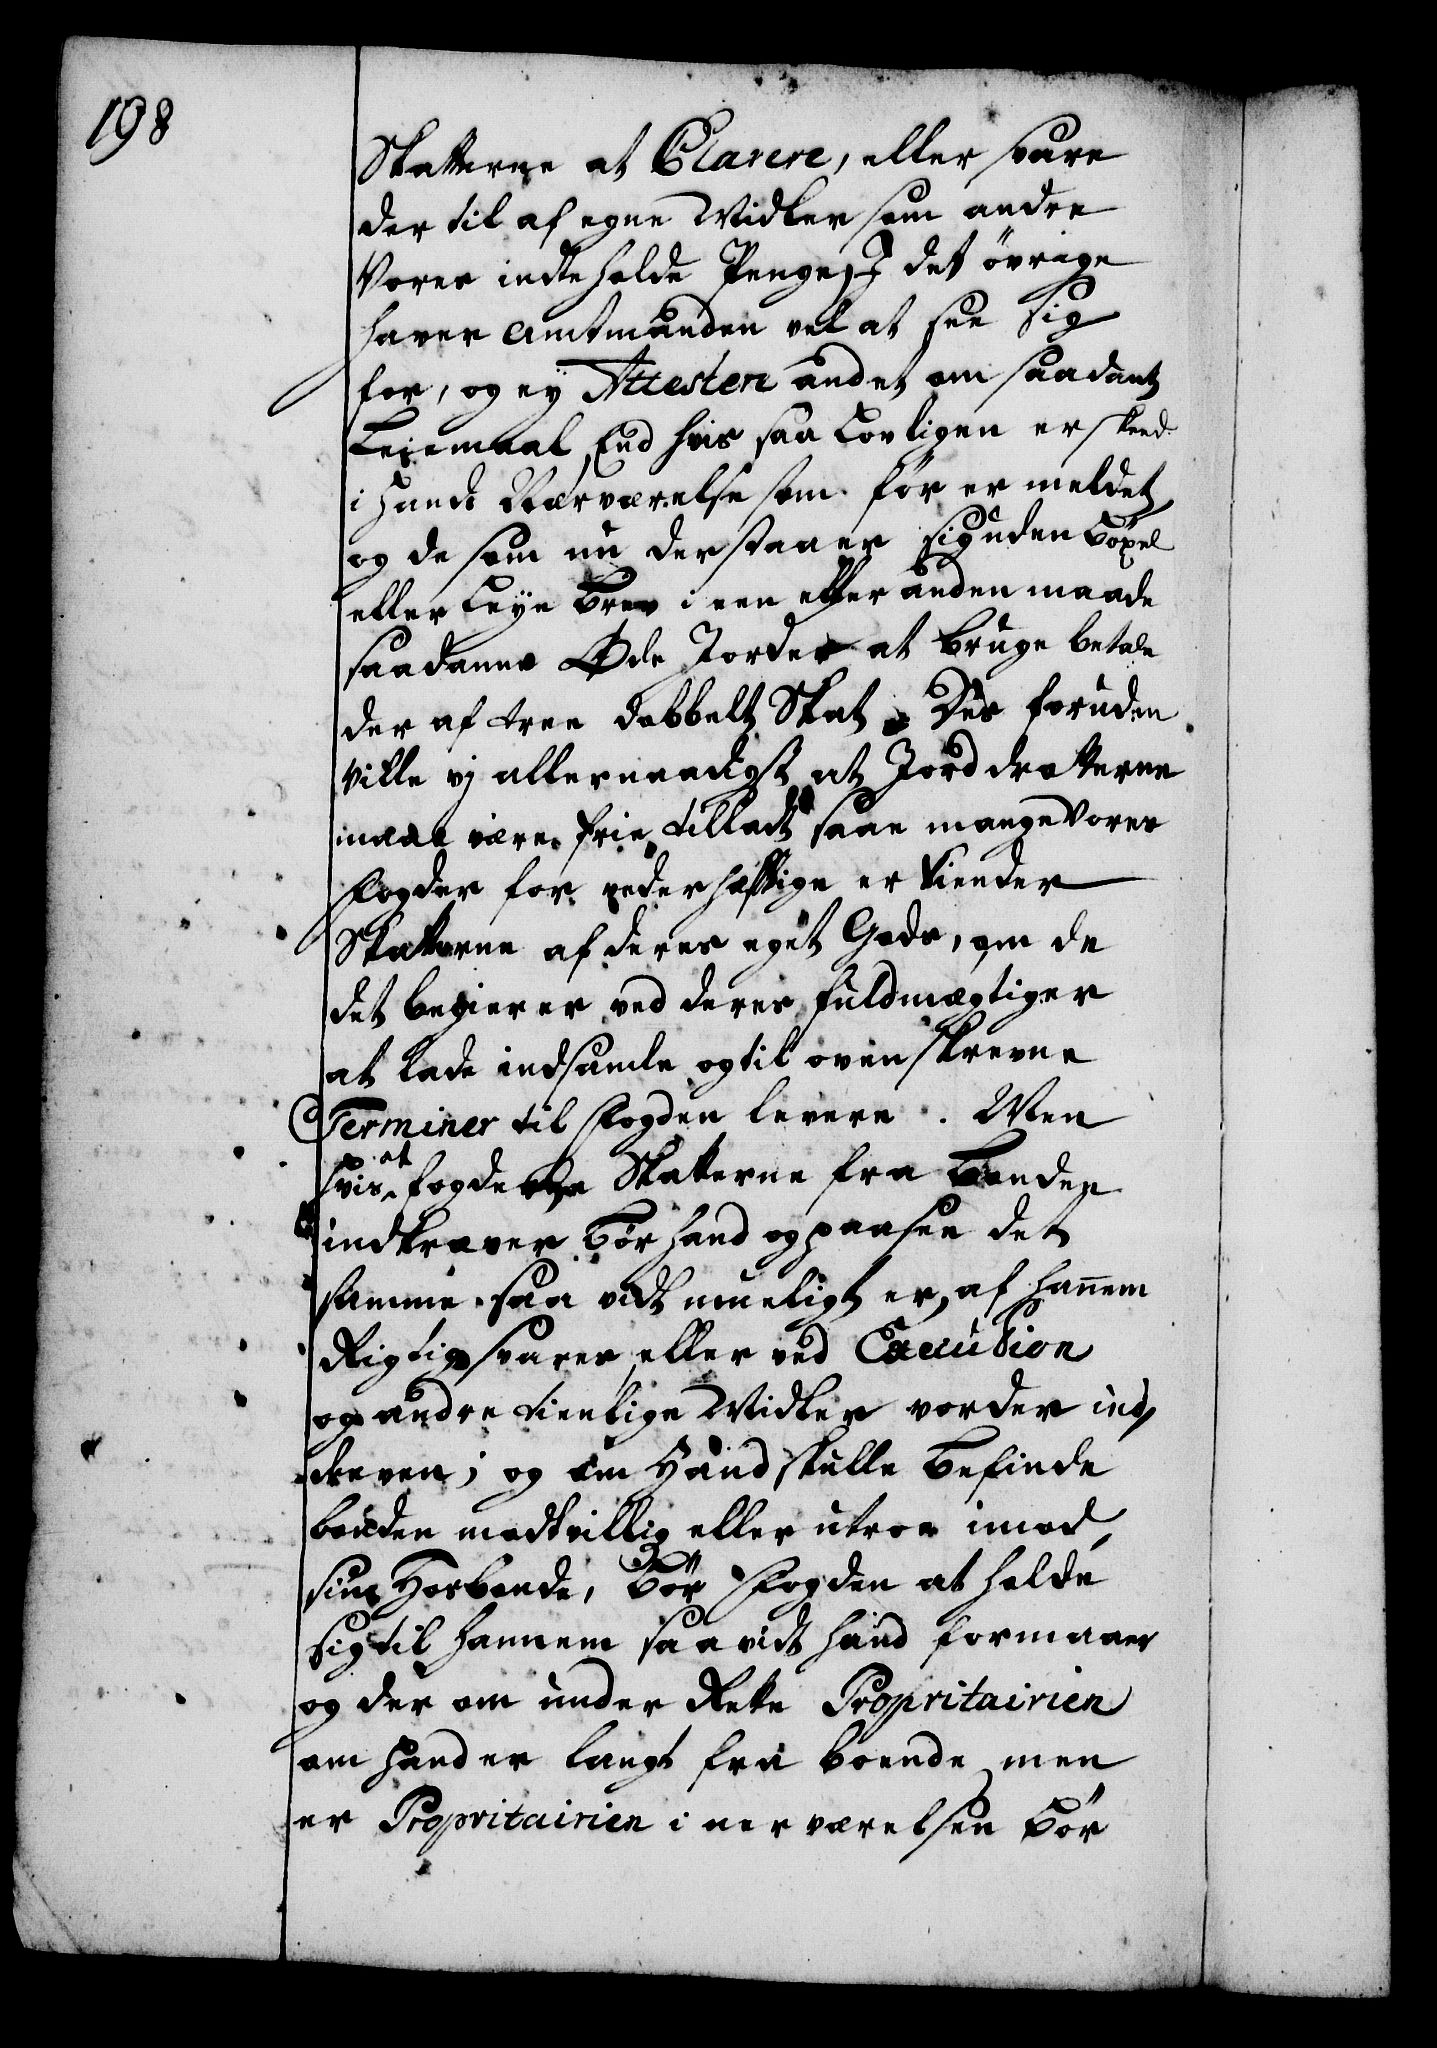 198
Skatterne at Clarere, eller svare
der til af egne Midler som andre
Vores indeholde Penge, I det øvrige
haver Amtmanden vel at see sig
for, og ey Attestere andet om saadant
Leiemaal, End hvis saa Lovligen er skeed
i Hands Nærværelse som før er meldet,
og de som nu derstaaer sig uden Böxel
eller Leye Brev i een eller anden maade
saadanne Øde Jorder at bruge betale
der af tree dobbelt Skat. Des foruden
ville vj allernaadigst at Jorddrotterne
maae være frie tilladt saae mange Vores
Fogder for vederhæftige erkiender
Skatterne af deres eget Gods, om de
det begierer ved deres fuldmægtiger
at lade indsamle og til ovenskrevne
Terminer til Fogden levere. Men
hvis at fogden Skatterne fra Bonden
indkræver bør hand og paasee det
samme saa vidt mueligt er, af hannem
Rigtig svares eller ved Execution
og andre tienlige Midler vorder ind,
dreven; og om Hand skulle befinde
bonden modtvillig eller utroe imod
sine Hosbonde, bör Fogden at holde
sig til hannem saa vidt hand formaaer
og der om under Rette Propritairien
om hand er langt fra boende, men
er Propritairien i nerværelsen bör